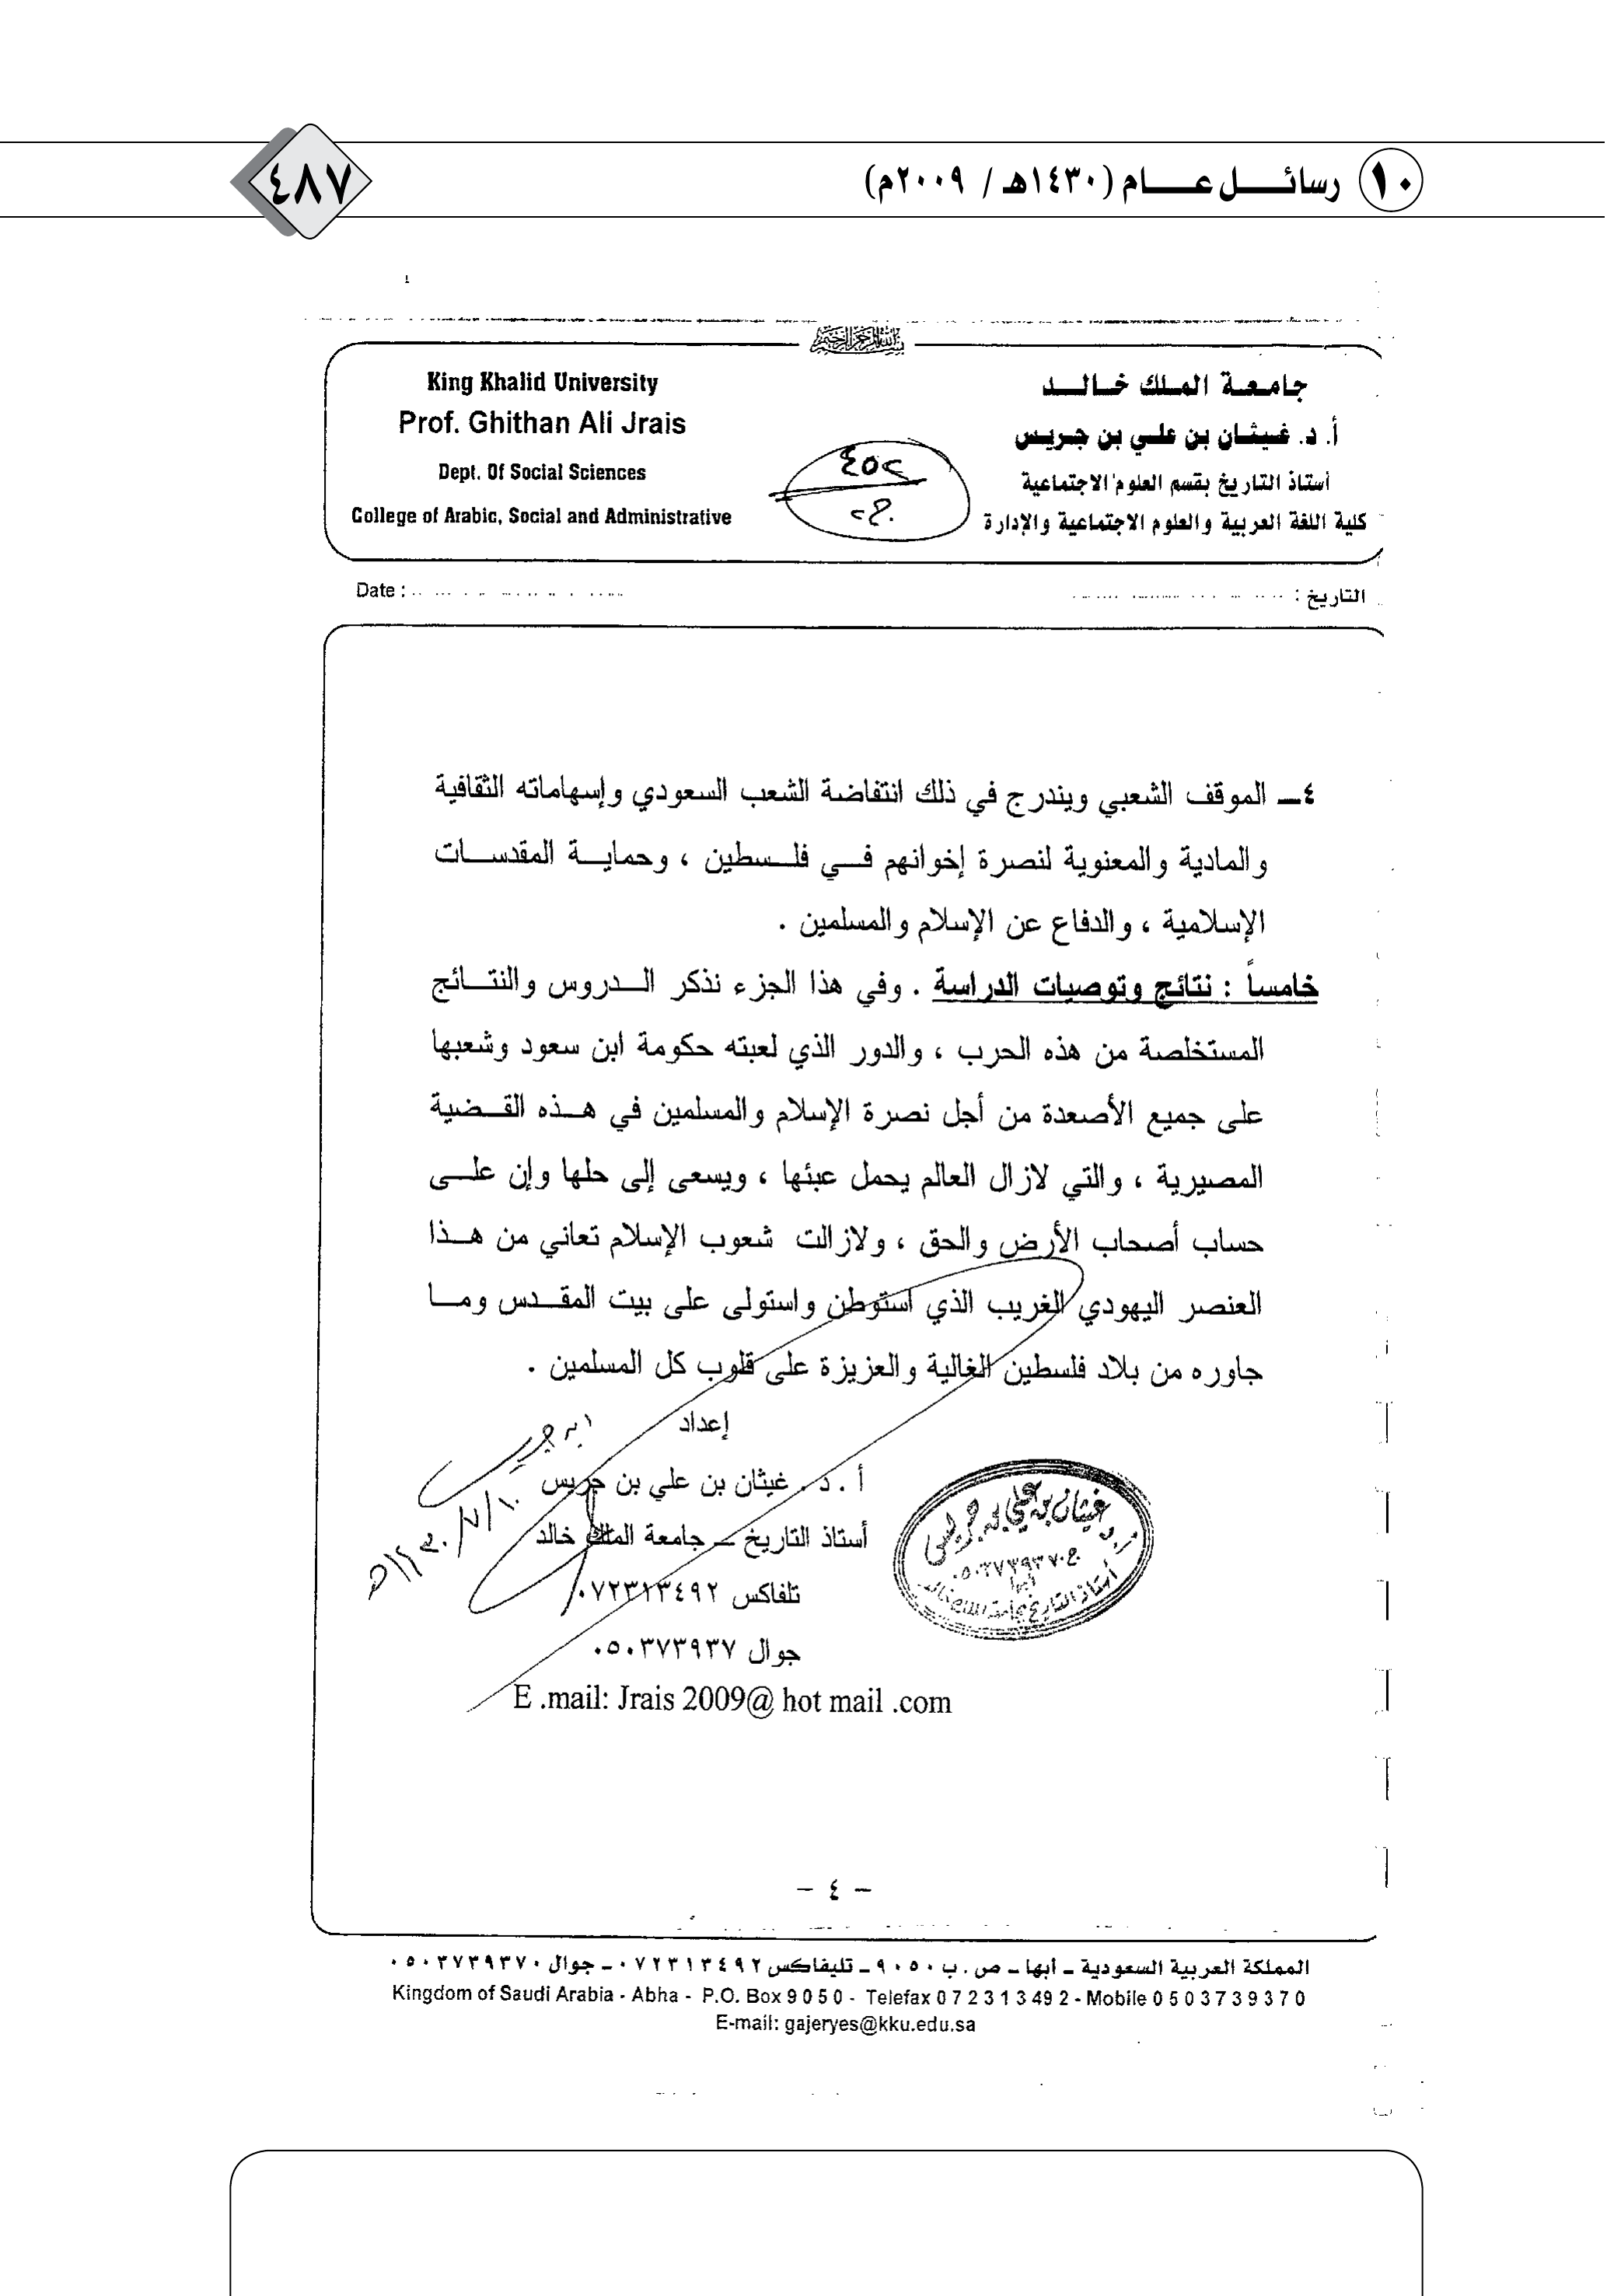 ١٠ رسائـــــل عـــــام (١٤٣٠هـ / ٢٠٠٩م)
٤٨٧
بسم الله الرحمن الرحيم
جامعة الملك خالد
أ. د. غيثان بن علي بن جريس
أستاذ التاريخ بقسم العلوم الاجتماعية
كلية اللغة العربية والعلوم الاجتماعية والإدارة
King Khalid University
Prof. Ghithan Ali Jrais
Dept. Of Social Sciences
College of Arabic, Social and Administrative
٤٥٢
التاريخ :
Date :
٤ــ الموقف الشعبي ويندرج في ذلك انتفاضة الشعب السعودي وإسهاماته الثقافية
والمادية والمعنوية لنصرة إخوانهم فـــي فلـــسطين ، وحمايـــة المقدســـات
الإسلامية ، والدفاع عن الإسلام والمسلمين .
خامساً : نتائج وتوصيات الدراسة . وفي هذا الجزء نذكر الـــدروس والنتـــائج
المستخلصة من هذه الحرب ، والدور الذي لعبته حكومة ابن سعود وشعبها
على جميع الأصعدة من أجل نصرة الإسلام والمسلمين في هـــذه القـــضية
المصيرية ، والتي لازال العالم يحمل عبئها ، ويسعى إلى حلها وإن علـــى
حساب أصحاب الأرض والحق ، ولازالت شعوب الإسلام تعاني من هـــذا
العنصر اليهودي الغريب الذي استوطن واستولى على بيت المقـــدس ومـــا
جاوره من بلاد فلسطين الغالية والعزيزة على قلوب كل المسلمين .
إعداد
أ . د . غيثان بن علي بن جريس
أستاذ التاريخ ــ جامعة الملك خالد
تلفاكس ٠٧٢٣١٣٤٩٢
جوال ٠٥٠٣٧٣٩٣٧
E .mail: Jrais 2009@ hot mail .com
ابن جريس
أ.د غيثان بن علي بن جريس
أبها
أستاذ التاريخ بجامعة الملك خالد
– ٤ –
المملكة العربية السعودية ــ أبها ــ ص . ب ٩٠٥٠ ــ تليفاكس ٠٧٢٣١٣٤٩٢ ــ جوال ٠٥٠٣٧٣٩٣٧٠
Kingdom of Saudi Arabia - Abha - P.O. Box 9 0 5 0 - Telefax 0 7 2 3 1 3 49 2 - Mobile 0 5 0 3 7 3 9 3 7 0
E-mail: gajeryes@kku.edu.sa